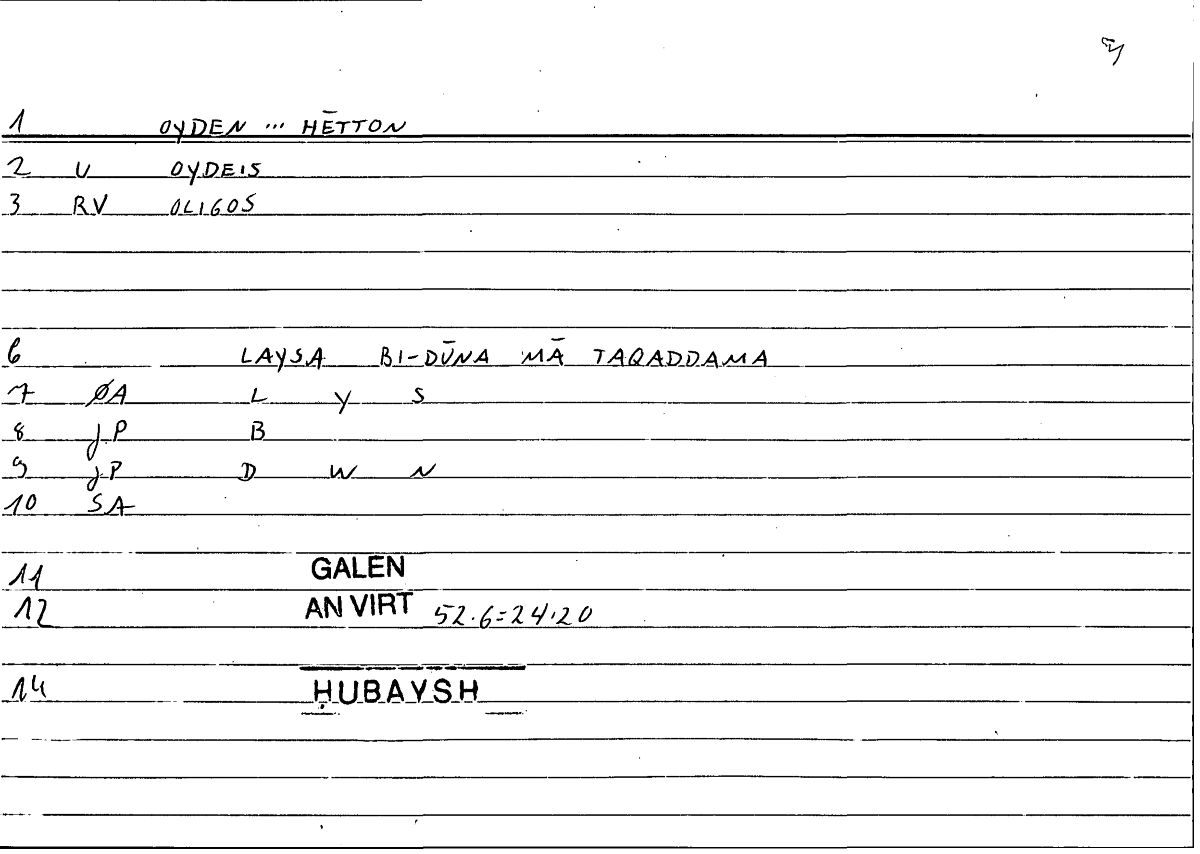 1 OYDEN ... HĒTTON
2 U OYDEIS
3 RV OLIGOS
6 LAYSA BI-DŪNA MĀ TAQADDAMA
7 ØA L Y S
8 JP B
9 JP D W N
10 SA
11 GALEN
12 AN VIRT 52.6=24,20
14 ḤUBAYSH